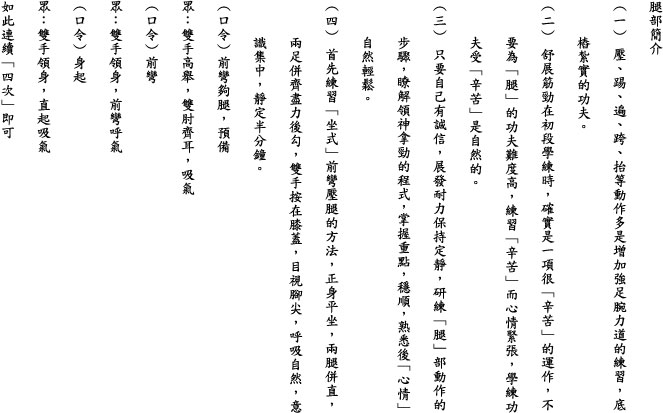 腿部簡介
（一）壓、踢、遍、跨、抬等動作多是增加強足腕力道的練習，底
樁紮實的功夫。
（二）舒展筋勁在初段學練時，確實是一項很「辛苦」的運作，不
要為「腿」的功夫難度高，練習「辛苦」而心情緊張，學練功
夫受「辛苦」是自然的。
（三）只要自己有誠信，展發耐力保持定靜，研練「腿」部動作的
步驟，瞭解領神拿勁的程式，掌握重點，穩順，熟悉後「心情」
自然輕鬆。
（四）首先練習「坐式」前彎壓腿的方法，正身平坐，兩腿併直，
兩足併齊盡力後勾，雙手按在膝蓋，目視腳尖，呼吸自然，意
識集中，靜定半分鐘。
（口令）前彎夠腿，預備
眾：雙手高舉，雙肘齊耳，吸氣
（口令）前彎
眾：雙手領身，前彎呼氣
（口令）身起
眾：雙手領身，直起吸氣
如此連續「四次」即可